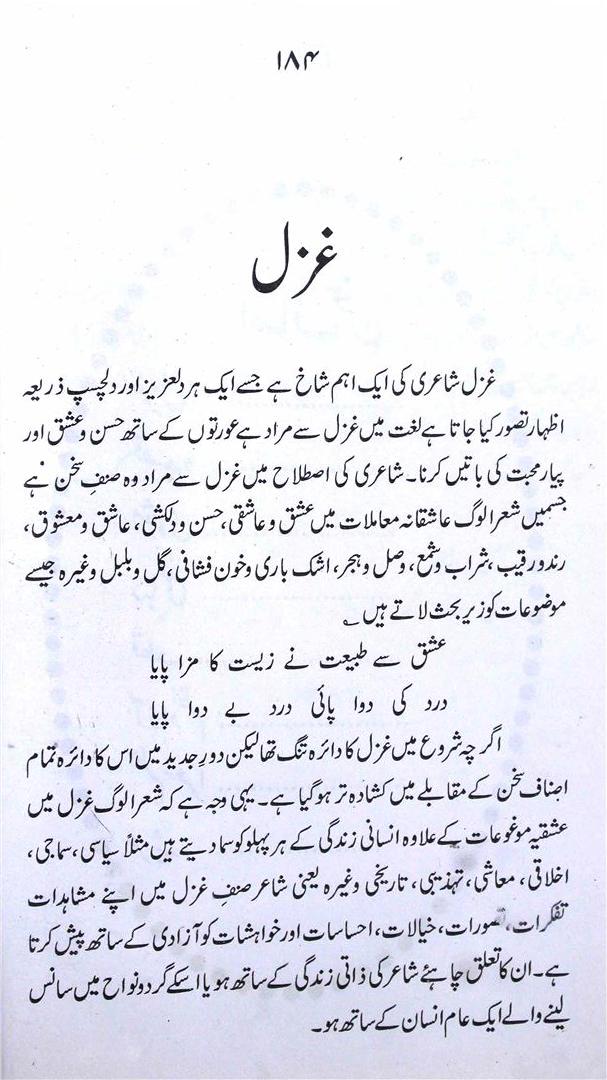 ۱۸۴
غزل
غزل شاعری کی ایک اہم شاخ ہے جسے ایک ہر دلعزیز اور دلچسپ ذریعہ
اظہار تصور کیا جاتا ہے لغت میں غزل سے مراد ہے عورتوں کے ساتھ حسن و عشق اور
پیار محبت کی باتیں کرنا۔ شاعری کی اصطلاح میں غزل سے مراد وہ صنفِ سخن ہے
جسمیں شعرا لوگ عاشقانہ معاملات میں عشق و عاشقی، حسن و دلکشی، عاشق و معشوق،
رند ورقیب، شراب و شمع، وصل و ہجر، اشک باری و خون فشانی، گل و بلبل وغیرہ جیسے
موضوعات کو زیر بحث لاتے ہیں ؎
عشق سے طبیعت نے زیست کا مزا پایا
درد کی دوا پائی درد بے دوا پایا
اگر چہ شروع میں غزل کا دائرہ تنگ تھا لیکن دورِ جدید میں اس کا دائرہ تمام
اصناف سخن کے مقابلے میں کشادہ تر ہو گیا ہے۔ یہی وجہ ہے کہ شعرا لوگ غزل میں
عشقیہ موغوعات کے علاوہ انسانی زندگی کے ہر پہلو کو سما دیتے ہیں مثلاً سیاسی، سماجی،
اخلاقی، معاشی، تہذیبی، تاریخی وغیرہ یعنی شاعر صنفِ غزل میں اپنے مشاہدات
تفکرات، تصورات، خیالات، احساسات اور خواہشات کو آزادی کے ساتھ پیش کرتا
ہے۔ ان کا تعلق چاہئے شاعر کی ذاتی زندگی کے ساتھ ہو یا اسکے گرد و نواح میں سانس
لینے والے ایک عام انسان کے ساتھ ہو۔